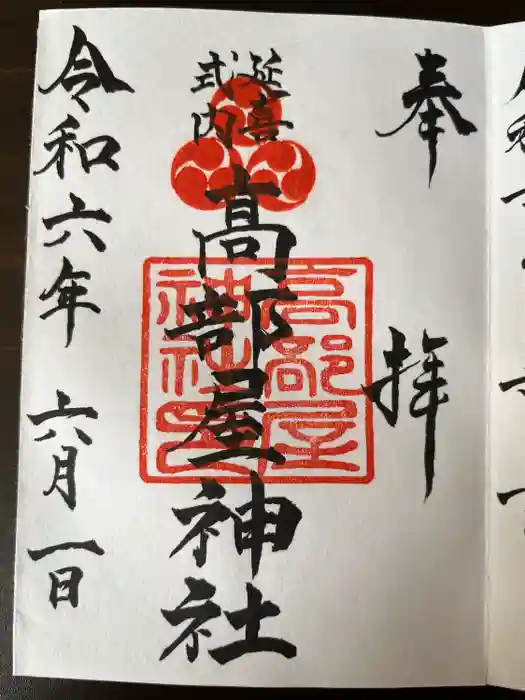 奉拝
延喜
式内
髙部屋神社
髙部屋
神社印
令和六年 六月一日